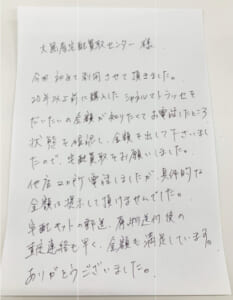 大黒屋宅配買取センター 様
今回 初めて利用させて頂きました。
20年以上前に購入した シャネルマトラッセを
だいたいの金額が知りたくてお電話したところ
状態を確認し、金額を出して下さいまし
たので、宅配買取をお願いしました。
他店 2か所 電話しましたが、具体的な
金額は提示して頂けませんでした。
宅配キットの郵送、荷物送付後の
査定連絡も早く、金額も満足しています。
ありがとうございました。